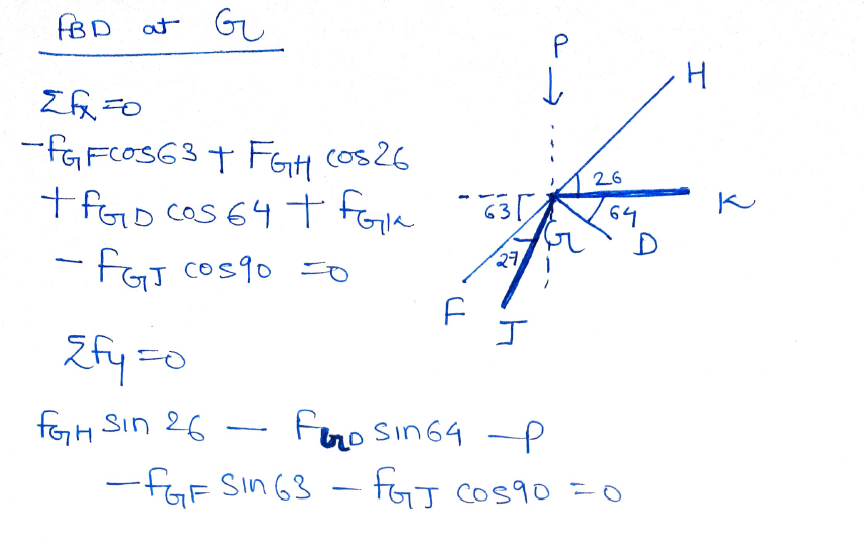 FBD at G
Σfx =0
-fGFcos63 + FGH cos26
+ fGD cos 64 + fGK
- fGJ cos90 =0
Σfy =0
fGH sin 26 - FGD sin64 -P
-fGF sin63 - fGJ cos90 =0
P
H
26
63
64
K
G
D
27
F
J